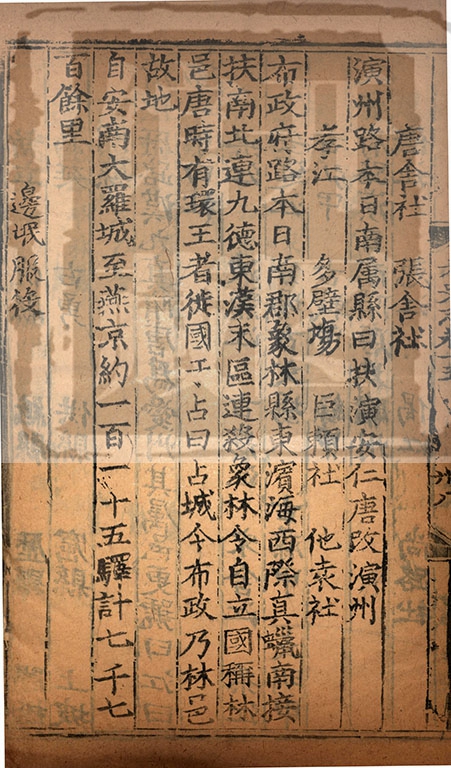 唐舍社　張舍社
演州路本日南属縣曰扶演安仁唐改演州
孝江　多壁塲　巨賴社　他袁社
布政府路本日南郡象林縣東濱海西際真蠟南接
扶南北連九德東漢末區連殺象林令自立國稱林
邑唐時有環王者徙國于占曰占城今布政乃林邑
故地
自安南大羅城至燕京約一百一十五驛計七千七
百餘里
邊氓服役